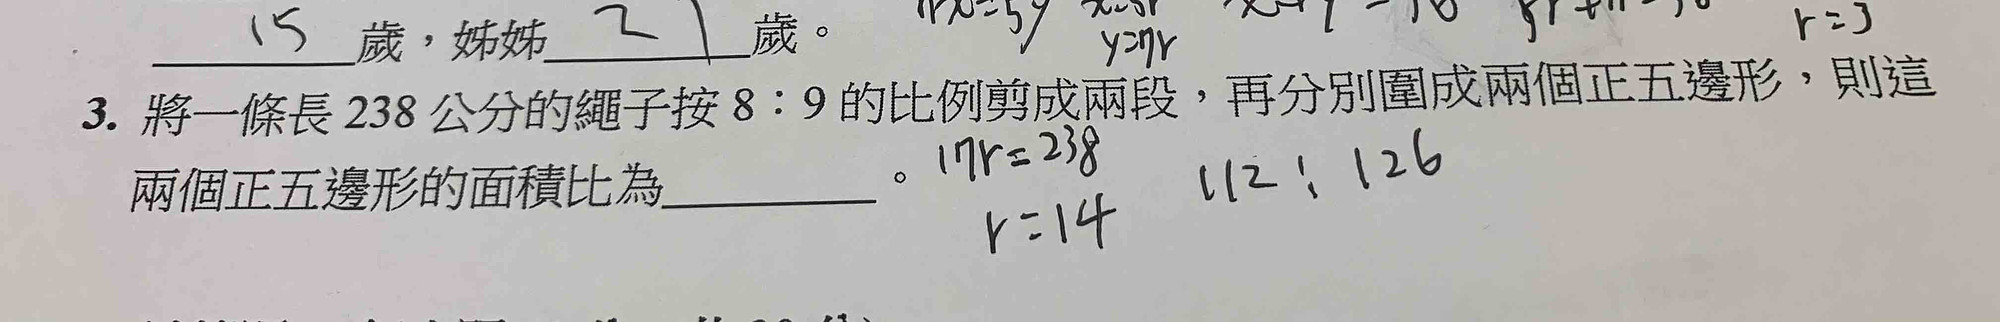 15 歲，姊姊 21 歲。
y=7r
r=3
3. 將一條長 238 公分的繩子按 8：9 的比例剪成兩段，再分別圍成兩個正五邊形，則這
兩個正五邊形的面積比為________。
17r=238
r=14
112：126